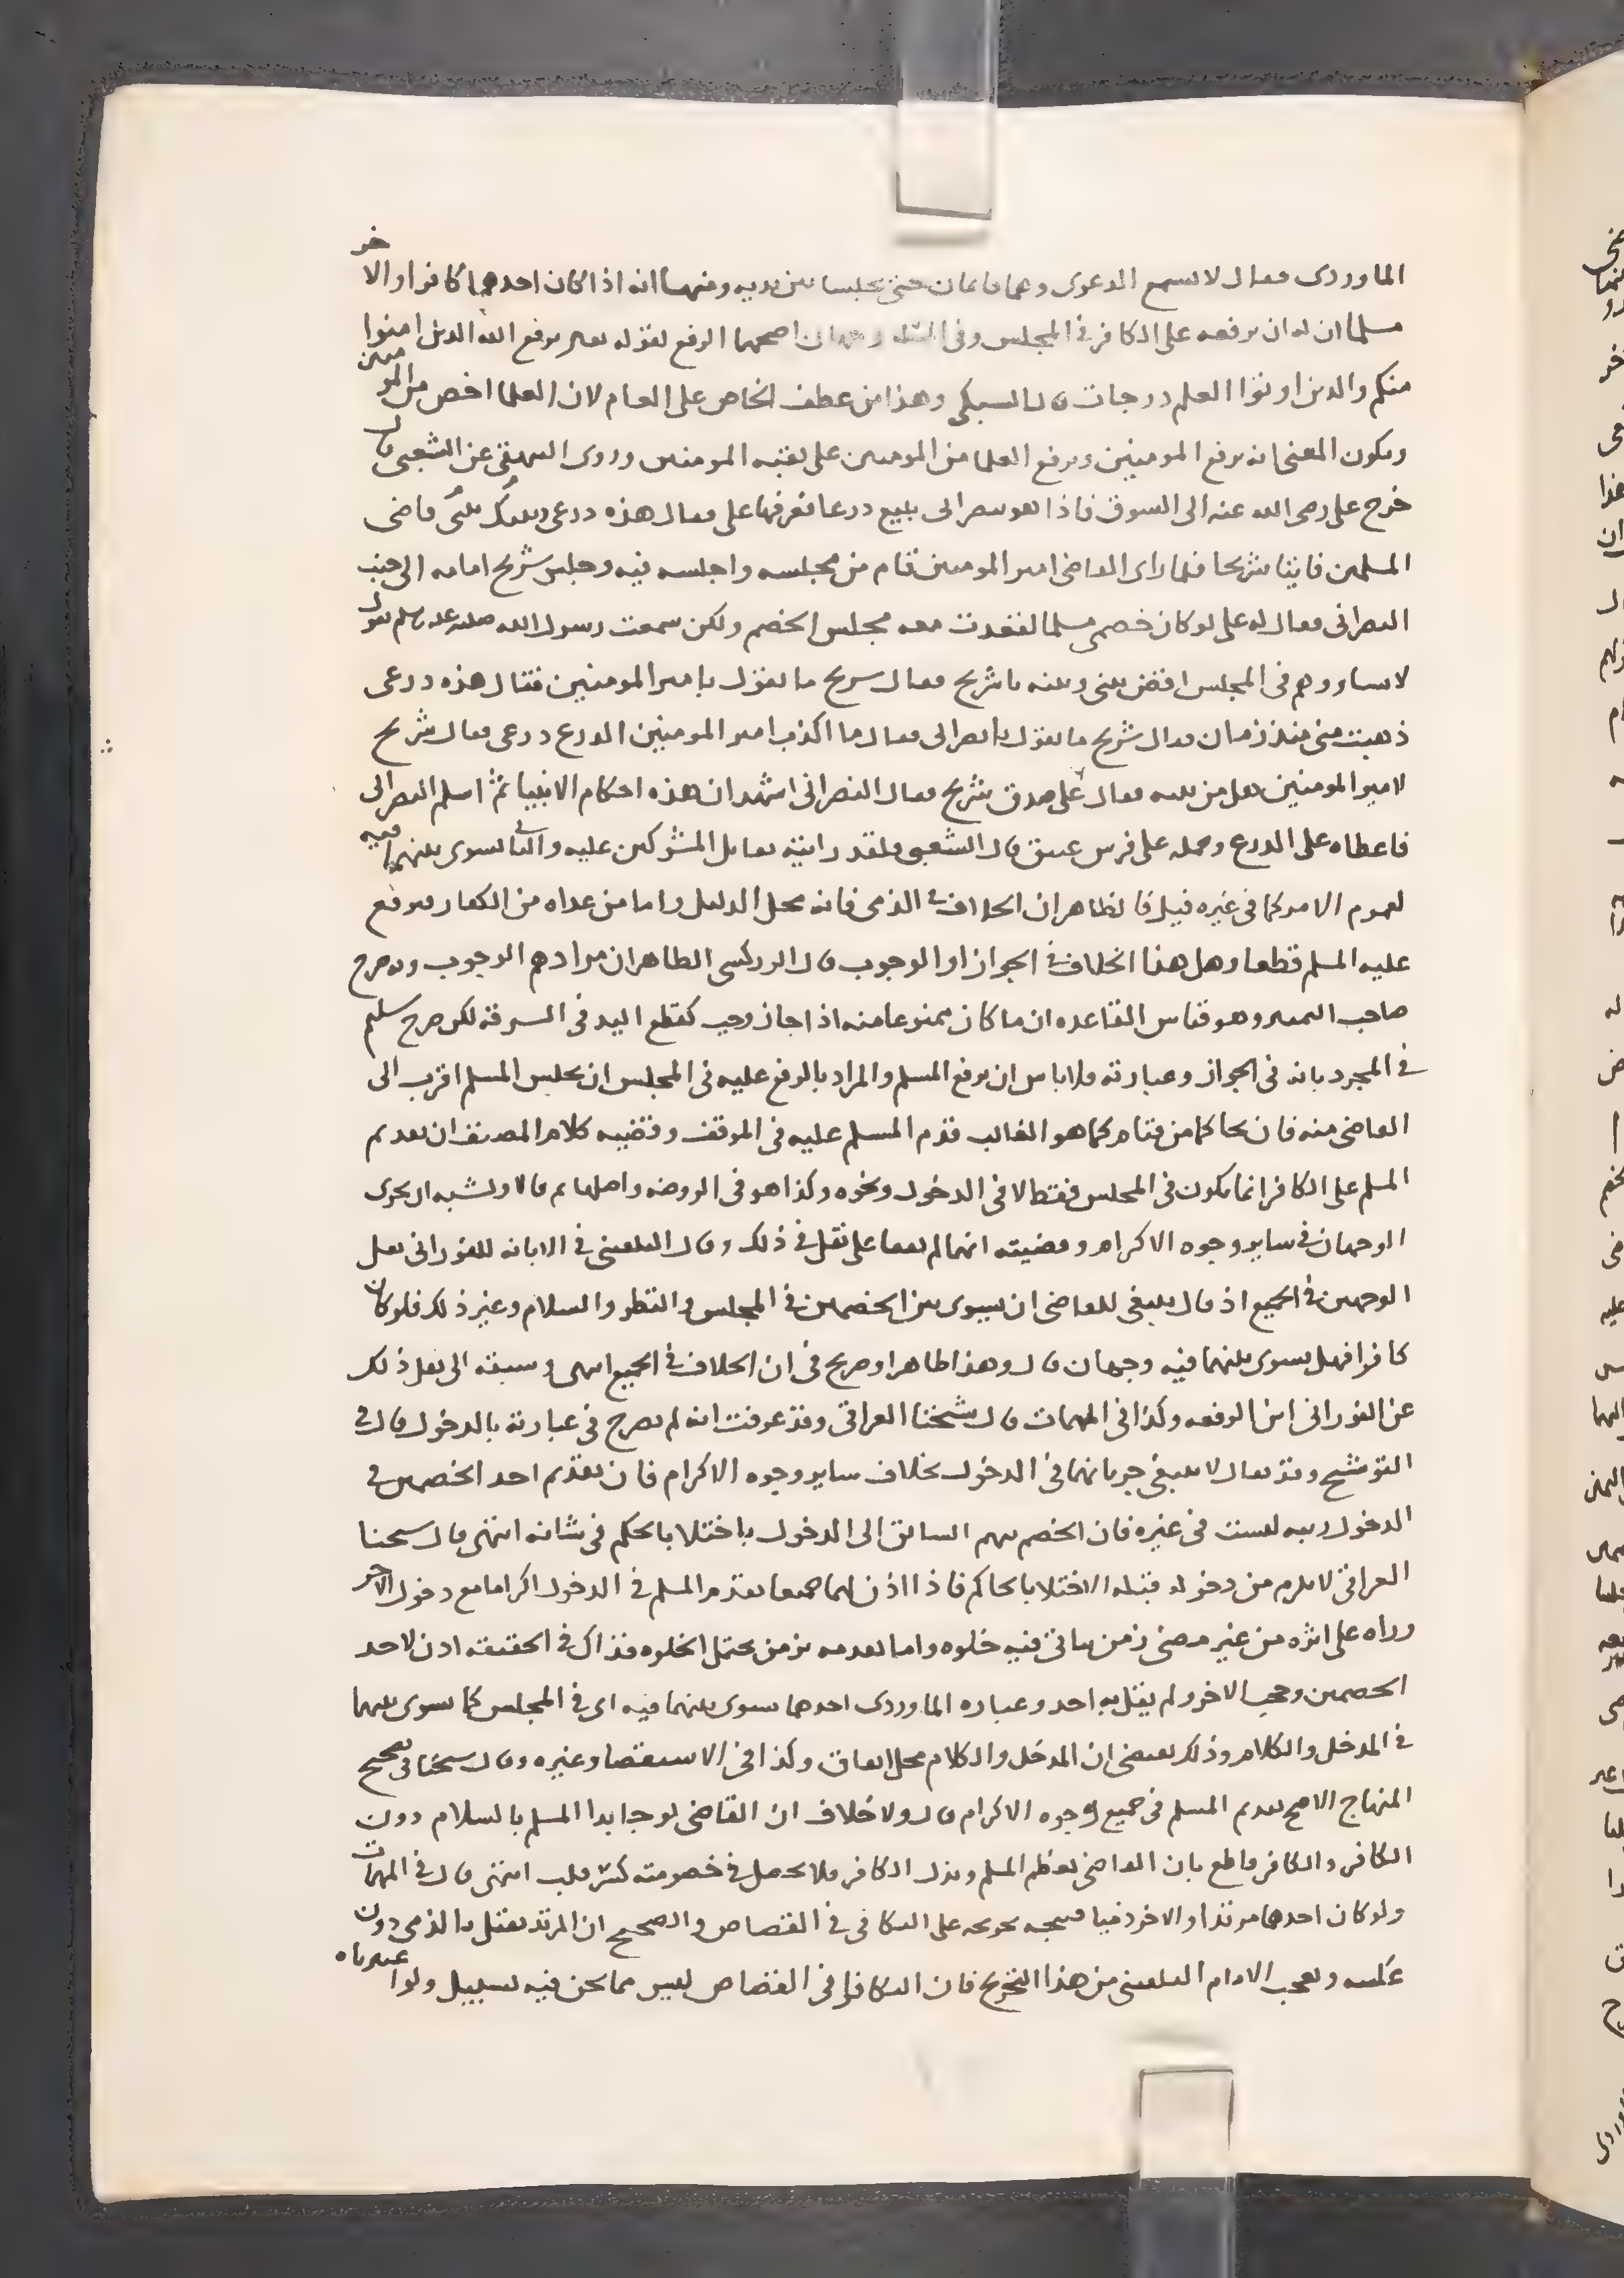 الماوردى فقال لا تسمع الدعوى وهما قايمان حتى يجلسا بين يديه ومنها انه اذا كان احدهما كافرا والاخر
مسلما ان له ان يرفعه على الكافر فى المجلس وفى المسئلة وجهان اصحهما الرفع لقوله تعالى يرفع الله الذين امنوا
منكم والذين اوتوا العلم درجات قال السبكى وهذا من عطف الخاص على العام لان العلما اخص من المومنين
ويكون المعنى انه يرفع المومنين ويرفع العلما من المومنين على بقية المومنين وروى البيهقى عن الشعبى قال
خرج على رضى الله عنه الى السوق فاذا هو بنصرانى يبيع درعا فعرفها على فقال هذه درعى وبينك بينى قاضى
المسلمين فاتيا شريحا فلما راى القاضى امير المومنين قام من مجلسه واجلسه فيه وجلس شريح امامه الى جنب
النصرانى فقال له على لو كان خصمى مسلما لقعدت معه مجلس الخصم ولكن سمعت رسول الله صلى الله عليه وسلم يقول
لا تساووهم فى المجلس اقض بينى وبينه يا شريح فقال شريح ما تقول يا امير المومنين فقال هذه درعى
ذهبت منى منذ زمان فقال شريح ما تقول يا نصرانى فقال ما اكذب امير المومنين الدرع درعى فقال شريح
لامير المومنين هل من بينه فقال على صدق شريح فقال النصرانى اشهد ان هذه احكام الانبيا ثم اسلم النصرانى
فاعطاه على الدرع وحمله على فرس عتيق قال الشعبى ولقد رايته يقاتل المشركين عليه والثانى يسوى بينهما فيه
لعموم الامر كما فى غيره قيل فالظاهر ان الخلاف فى الذمى فانه محل الدليل واما من عداه من الكفار فيرفع
عليه المسلم قطعا وهل هذا الخلاف فى الجواز او الوجوب قال الزركشى الظاهر ان مرادهم الوجوب وبه صرح
صاحب التمييز وهو قياس القاعده ان ما كان ممنوعا منه اذا جاز وجب كقطع اليد فى السرقه لكن صرح سليم
فى المجرد بانه فى الجواز وعبارته ولا باس ان يرفع المسلم والمراد بالرفع عليه فى المجلس ان يجلس المسلم اقرب الى
القاضى منه فان تحاكما من قيام كما هو الغالب قدم المسلم عليه فى الموقف وقضيه كلام المصنف ان تقديم
المسلم على الكافر انما يكون فى المجلس فقط لا فى الدخول ونحوه وكذا هو فى الروضه واصلها ثم قالا ويشبه ان يجرى
الوجهان فى ساير وجوه الاكرام وقضيته انهما لم يقفا على نقل فى ذلك وقال البلقينى فى الابانه للفورانى نقل
الوجهين فى الجميع اذ قال ينبغى للقاضى ان يسوى بين الخصمين فى المجلس والنظر والسلام وغير ذلك فلو كان
كافرا فهل يسوى بينهما فيه وجهان قال وهذا ظاهر او صريح فى ان الخلاف فى الجميع انتهى وسبقه الى نقل ذلك
عن الفورانى ابن الرفعه وكذا فى المهمات قال شيخنا العراقى وقد عرفت انه لم يصرح فى عبارته بالدخول قال فى
التوشيح وقد يقال لا ينبغى جريانهما فى الدخول بخلاف ساير وجوه الاكرام فان تقديم احد الخصمين فى
الدخول ريبه ليست فى غيره فان الخصم يتهم السابق الى الدخول باختلا بالحكم فى شانه انتهى قال شيخنا
العراقى لا يلزم من دخوله قبله الاختلا بالحاكم فاذا اذن لهما جميعا تقدم المسلم فى الدخول اكراما مع دخول الاخر
وراه على اثره من غير مضى زمن ياتى فيه خلوه واما تقدمه بزمن يحتمل الخلوه فذاك فى الحقيقه اذن لاحد
الخصمين وحجب الاخر ولم يقل به احد وعباره الماوردى احدهما يسوى بينهما فيه اى فى المجلس كما يسوى بينهما
فى المدخل والكلام وذلك يقتضى ان المدخل والكلام محل اتفاق وكذا فى الاستقصا وغيره وقال شيخنا فى تصحيح
المنهاج الاصح تقديم المسلم فى جميع وجوه الاكرام قال ولا خلاف ان القاضى لو جا بدا المسلم بالسلام دون
الكافر والكافر قاطع بان القاضى يعظم المسلم ويذل الكافر فلا يحصل فى خصومته كسر قلب انتهى قال فى المهمات
ولو كان احدهما مرتدا والاخر ذميا فيتجه تخريجه على التكافى فى القصاص والصحيح ان المرتد يقتل بالذمى دون
عكسه وتعجب الامام البلقينى من هذا التخريج فان التكافؤ فى القصاص ليس مما نحن فيه بسبيل ولو اعتبرناه